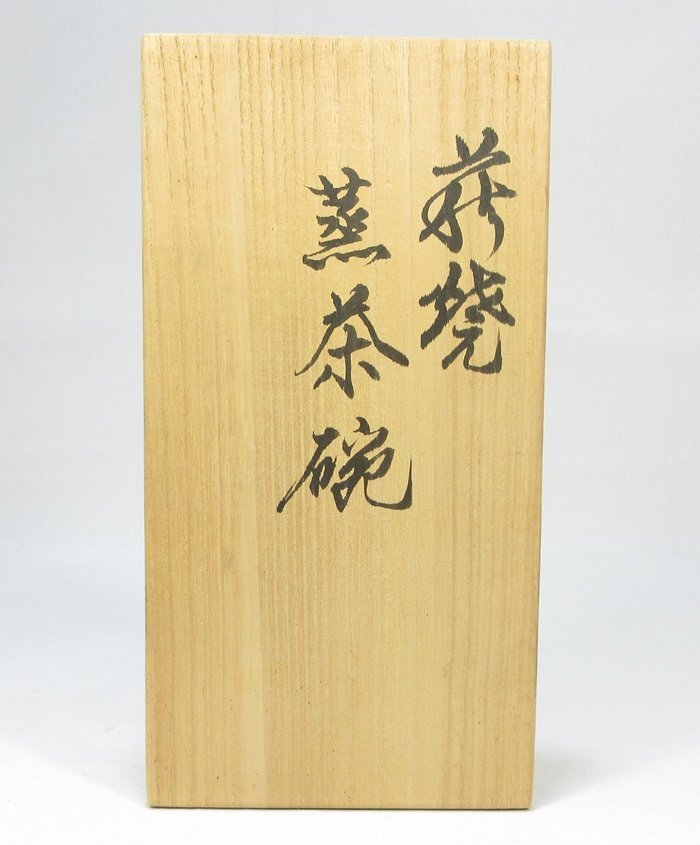 萩焼
蒸茶碗